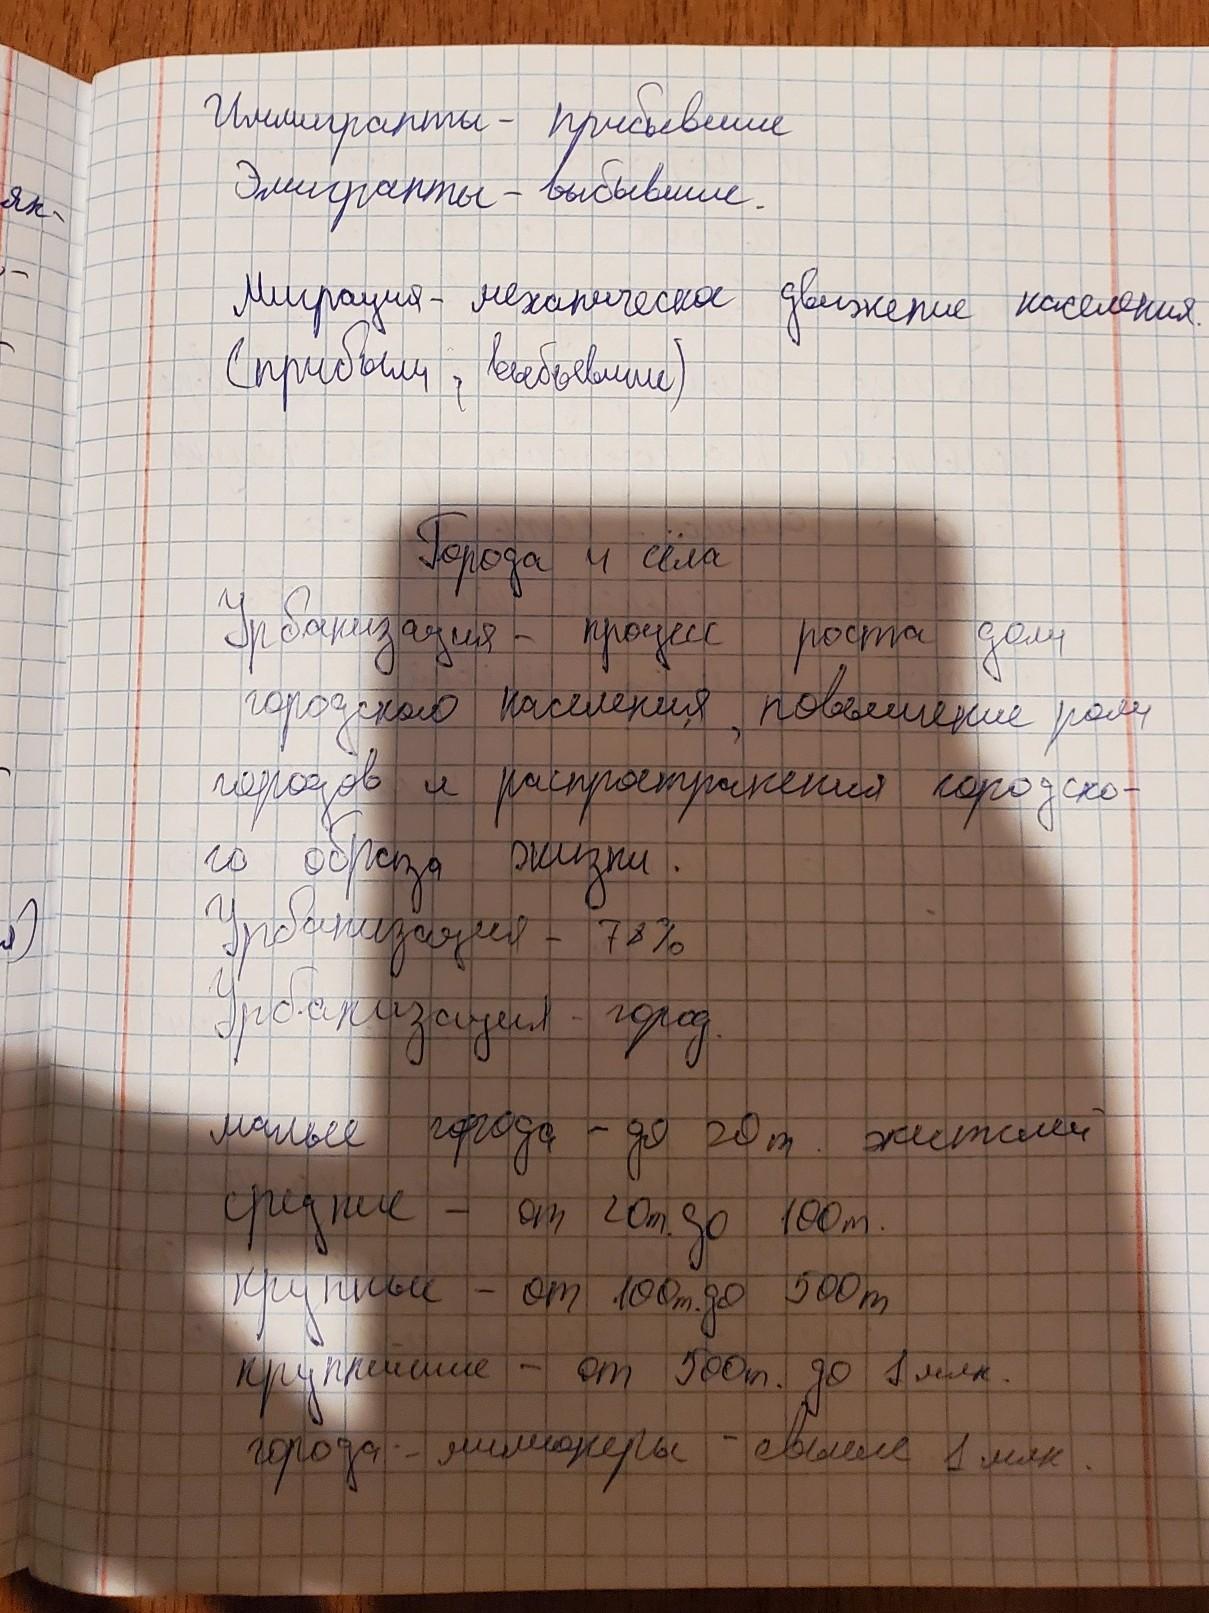 Иммигранты - прибывшие
Эмигранты - выбывшие.
Миграция - механическое движение населения.
(прибыли, выбывшие)
Города и сёла
Урбанизация - процесс роста доли
городского населения, повышение роли
городов и распространения городско-
го образа жизни.
Урбанизация - 78%
Урбанизация - город.
малые города - до 20т. жителей
средние - от 20т. до 100т.
крупные - от 100т. до 500т
крупнейшие - от 500т. до 1 млн.
города - миллионеры - свыше 1 млн.
як-
я)